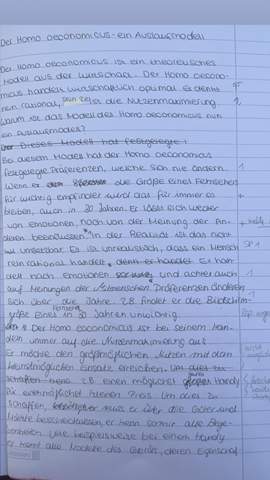 Der Homo oeconomicus - ein Auslaufmodell
Der Homo oeconomicus ist ein theoretisches
Modell aus der Wirtschaft. Der Homo oecono-
micus handelt wirtschaftlich optimal. Er denkt
rein rational, sein Ziel ist die Nutzenmaximierung.
Warum ist das Modell des Homo oeconomicus nun
ein Auslaufmodell?
Dieses Modell hat festgelegte
Bei diesem Modell hat der Homo oeconomicus
festgelegte Präferenzen, welche sich nie ändern.
Wenn er die Größe eines Fernsehers
für wichtig empfindet wird das für immer so
bleiben, auch in 20 Jahren. Er lässt sich weder
von Emotionen, noch von der Meinung der An-
deren beeinflussen. In der Realität ist das nicht
Es ist unrealistisch, dass ein Mensch
rein rational handelt, denn er handelt Er han-
delt nach Emotionen und achtet auch
auf Meinungen der Mitmenschen. Präferenzen ändern
sich über die Jahre. Z.B. findet er die Bildschirm-
größe eines Fernsehers in 20 Jahren unwichtig.
Der Homo oeconomicus ist bei seinem Han-
deln immer auf die Nutzenmaximierung aus.
Er möchte den größtmöglichen Nutzen mit dem
kleinstmöglichen Einsatz erreichen. Um dies zu
schaffen Z.B. einen möglichst Handy
für möglichst kleinen Preis. Um dies zu
schaffen, muss er über die Güter und
Märkte bescheid wissen, er kennt somit alle Ange-
bote. Wie beispielsweise bei einem Handy
er kennt alle Modelle des Geräts, deren Eigenschaf